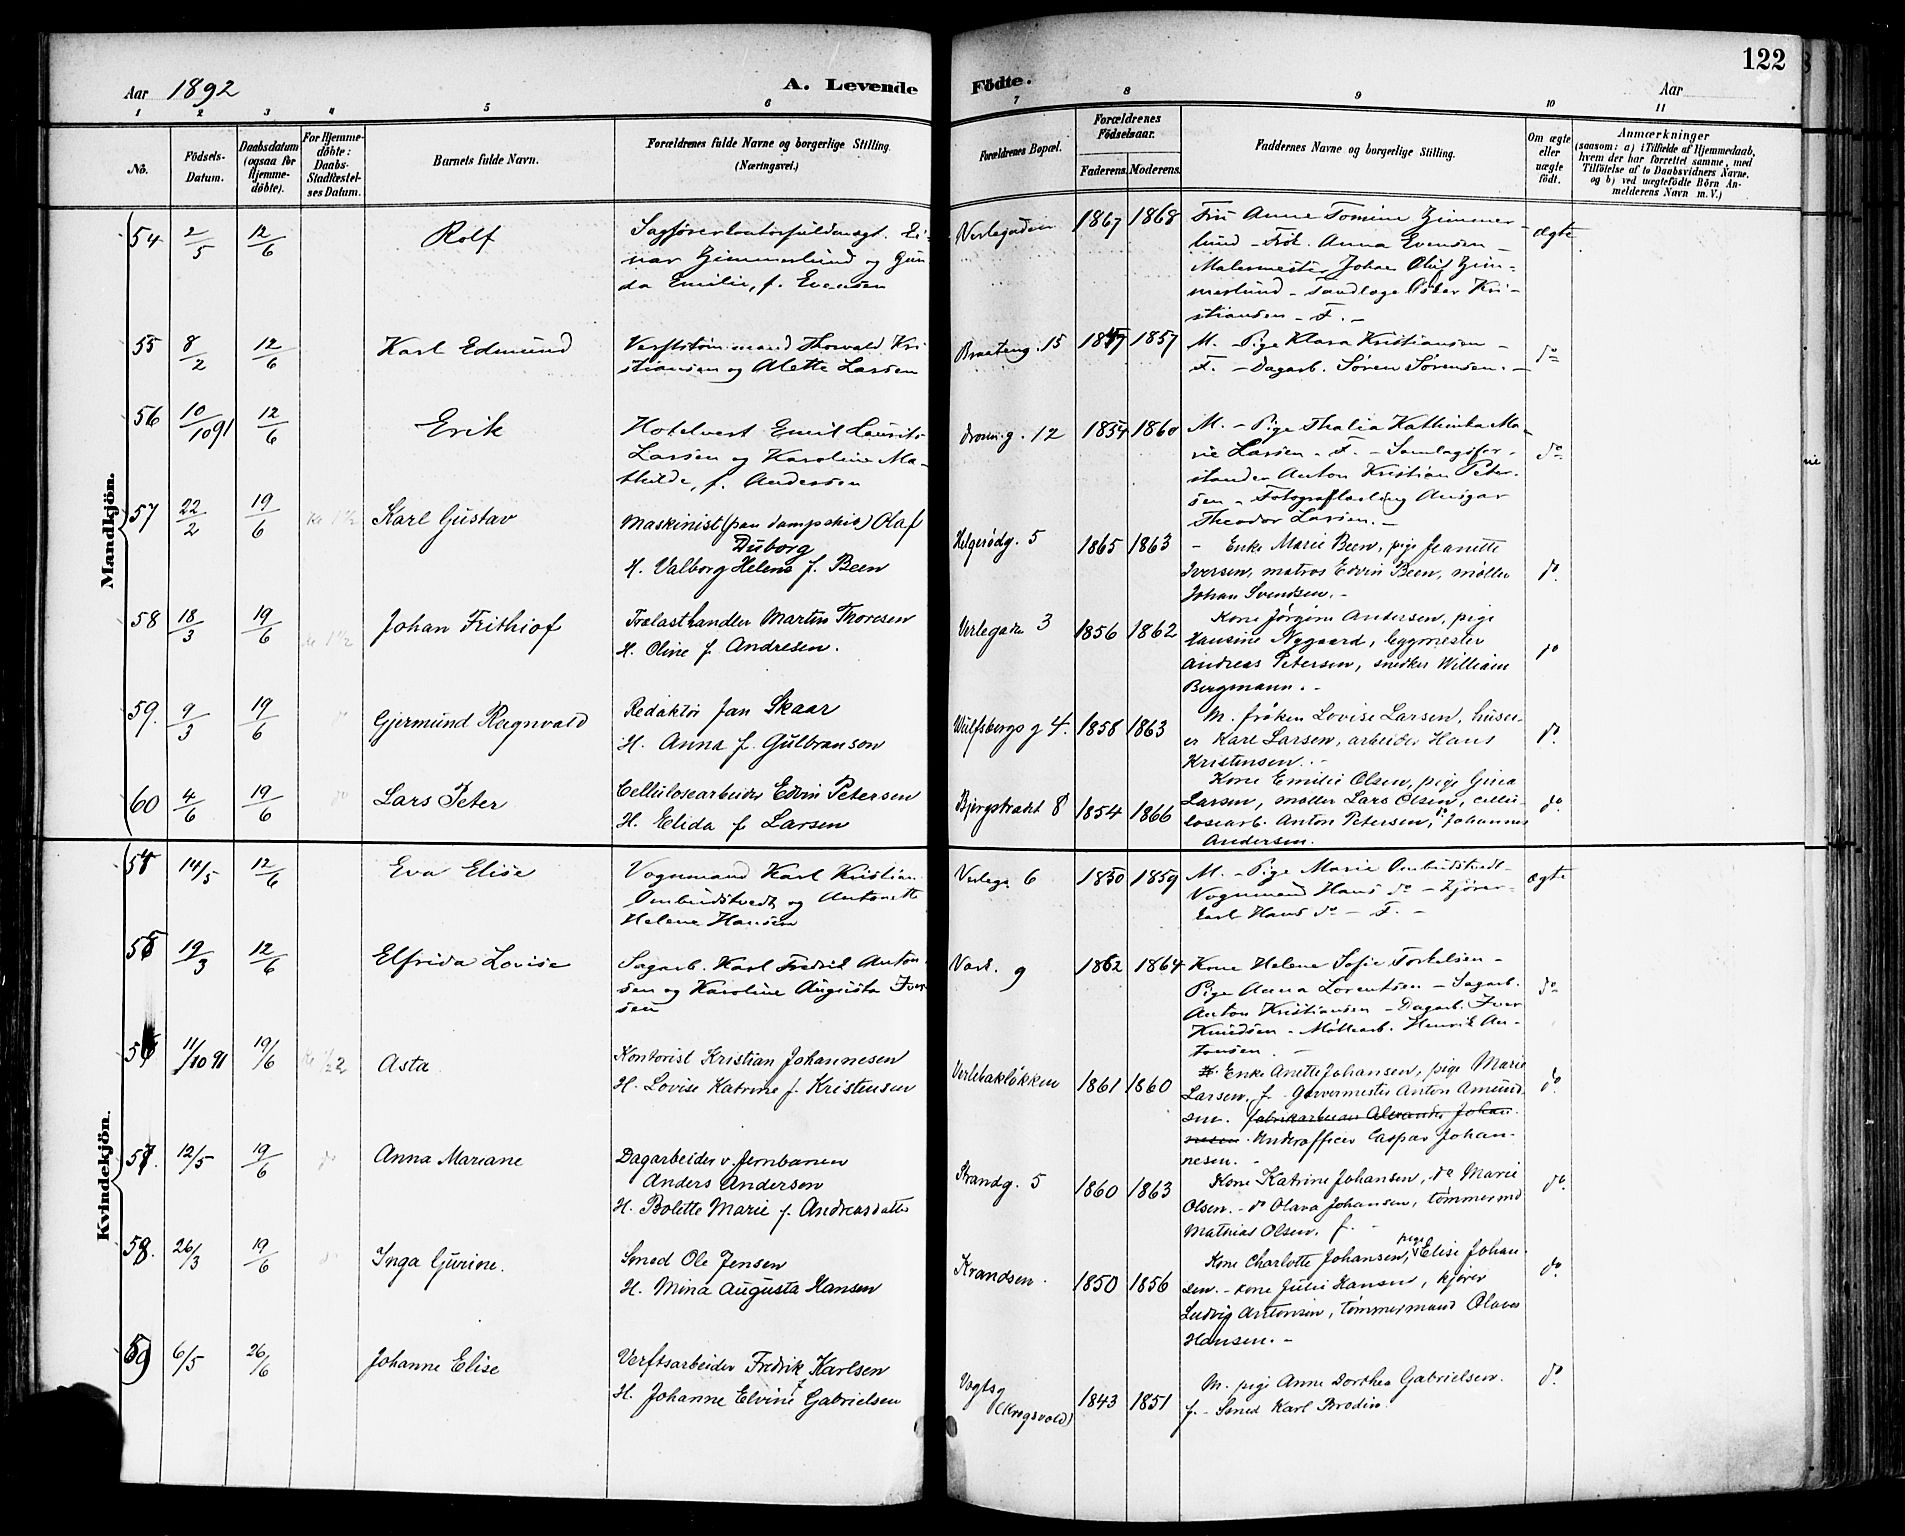 122
Aar 1892
A. Levende
Födte.
Aar
1 2 3 4 5 6 7 8 9 10 11
No.
Födsels-Datum.
Daabsdatum (ogsaa for Hjemme-döbte).
For Hjemme-döbte: Daabs-Stadfæstel-ses Datum.
Barnets fulde Navn.
Forældrenes fulde Navne og borgerlige Stilling.
(Næringsvei.)
Forældrenes Bopæl.
Forældrenes Födselsaar.
Faderens. Moderens.
Faddernes Navne og borgerlige Stilling.
Om ægte eller uægte födt.
Anmærkninger
(saasom: a) i Tilfælde af Hjemmedaab,
hvem der har forrettet samme, med
Tilföielse af to Daabsvidners Navne.
og b) ved uægtefödte Börn An-
melderens Navn m. V.)
Mandkjön.
54 2/5 12/6 Rolf
Sagförerkontorfuldmægt. Ei-
nar Zimmerlund og Gun-
da Emilie, f. Evensen
Verlegaden 1867 1868
Fru Anne Tomine Zimmer-
lund - Frök. Anna Evensen -
Malermester Johan Oluf Zim-
merlund - Tandlæge Peter Kri-
stiansen - F. -
ægte
55 8/2 12/6 Karl Edmund
Verftstömmermand Thorvald Kri
stiansen og Alette Larsen
Braateng. 15 1859 1857
M. - Pige Klara Kristiansen -
F. - Dagarb. Sören Sörensen. -
do
56 10/10 91 12/6 Erik
Hotelvert Emil Laurits
Larsen og Karoline Ma-
thilde, f. Andersen
Dronn.g. 12 1854 1860
M. - Pige Thalia Kathinka Ma-
rie Larsen - F. - Samlagsfor-
stander Anton Kristian Peter-
sen - Fotograflærling Ansgar
Theodor Larsen. -
do
57 22/2 19/6 Karl Gustav
Maskinist (paa dampskib) Olaf
Duborg
H. Valborg Helene f. Been
Helgerödg. 5 1865 1863
- Enke Marie Been, pige Jeanette
Iversen, matros Edvin Been, möller
Johan Svendsen. -
do.
58 18/3 19/6 Johan Frithiof
Trælasthandler Martin Thoresen
H. Oline f. Andresen.
Verlegaden 3 1856 1862
Kone Jörgine Andersen, pige
Hansine Nygaard, bygmester
Andreas Petersen, snedker William
Bergmann. -
do
59. 9/3 19/6 do Gjermund Ragnvald
Redaktör Jan Skaar
H. Anna f. Gulbranson
Wulfsbergs g 4. 1858 1863
M. fröken Lovise Larsen, huseier
Karl Larsen, arbeider Hans
Kristensen. -
do.
60 4/6 19/6 do Lars Peter
Cellulosearbeider Edvin Petersen
H. Elida f. Larsen
Bjergstrædet 8 1854 1866
Kone Emilie Olsen, pige Gina
Larsen, möller Lars Olsen, cellu-
losearb. Anton Petersen, do Johannes
Andersen.
do.
Kvindekjön.
54 14/5 12/6 Eva Elise
Vognmand Karl Kristian
Ombudstvedt og Antonette
Helene Hansen
Verleg. 6 1850 1859
M. - Pige Marie Ombudstvedt -
Vognmand Hans do - Kjörer-
karl Hans do - F. -
ægte
55 19/3 12/6 Elfrida Lovise
Sagarb. Karl Fredrik Anton-
sen og Karoline Augusta Iver-
sen
1862 1864
Kone Helene Sofie Torkelsen -
Pige Anna Lorentsen - Sagarb.
Anton Kristiansen - Dagarb. Iver
Knudsen - Möllearb. Henrik An-
tonsen. -
do
56 11/10 91 19/6 Asta.
Kontorist Kristian Johannesen
H. Lovise Katrine f. Kristensen
Verlebaklökken 1861 1860
Enke Anette Johansen, pige Marie
Larsen, f. Garvermester Anton Amund-
sen. fabrikarbeider Alexander Johan-
nesen. Underofficer Caspar Johan-
nesen. -
do.
57. 12/5 19/6 do Anna Mariane
Dagarbeider v. Jernbanen
Anders Andersen
H. Bolette Marie f. Andreasdatter
Strandg. 5 1860 1863
Kone Katrine Johansen, do Marie
Olsen. - do Olava Johansen, tömmermd
Mathias Olsen, f. -
do.
58. 26/3 19/6 Inga Gurine.
Smed Ole Jensen
H. Mina Augusta Hansen
Strandsen. 1850 1856
Kone Charlotte Johansen, pige Elise Johan-
sen. - kone Julie Hansen, kjörer
Ludvig Antonsen, tömmermand Olaves
Hansen. -
do.
59 6/5 26/6 Johanne Elise
Verftsarbeider Fredrik Karlsen
H. Johanne Elvine f. Gabrielsen
Vogtsg (Krogsvold) 1843 1851
M. pige Anne Dorthea Gabrielsen.
f. - Smed Karl Brodin.
do.